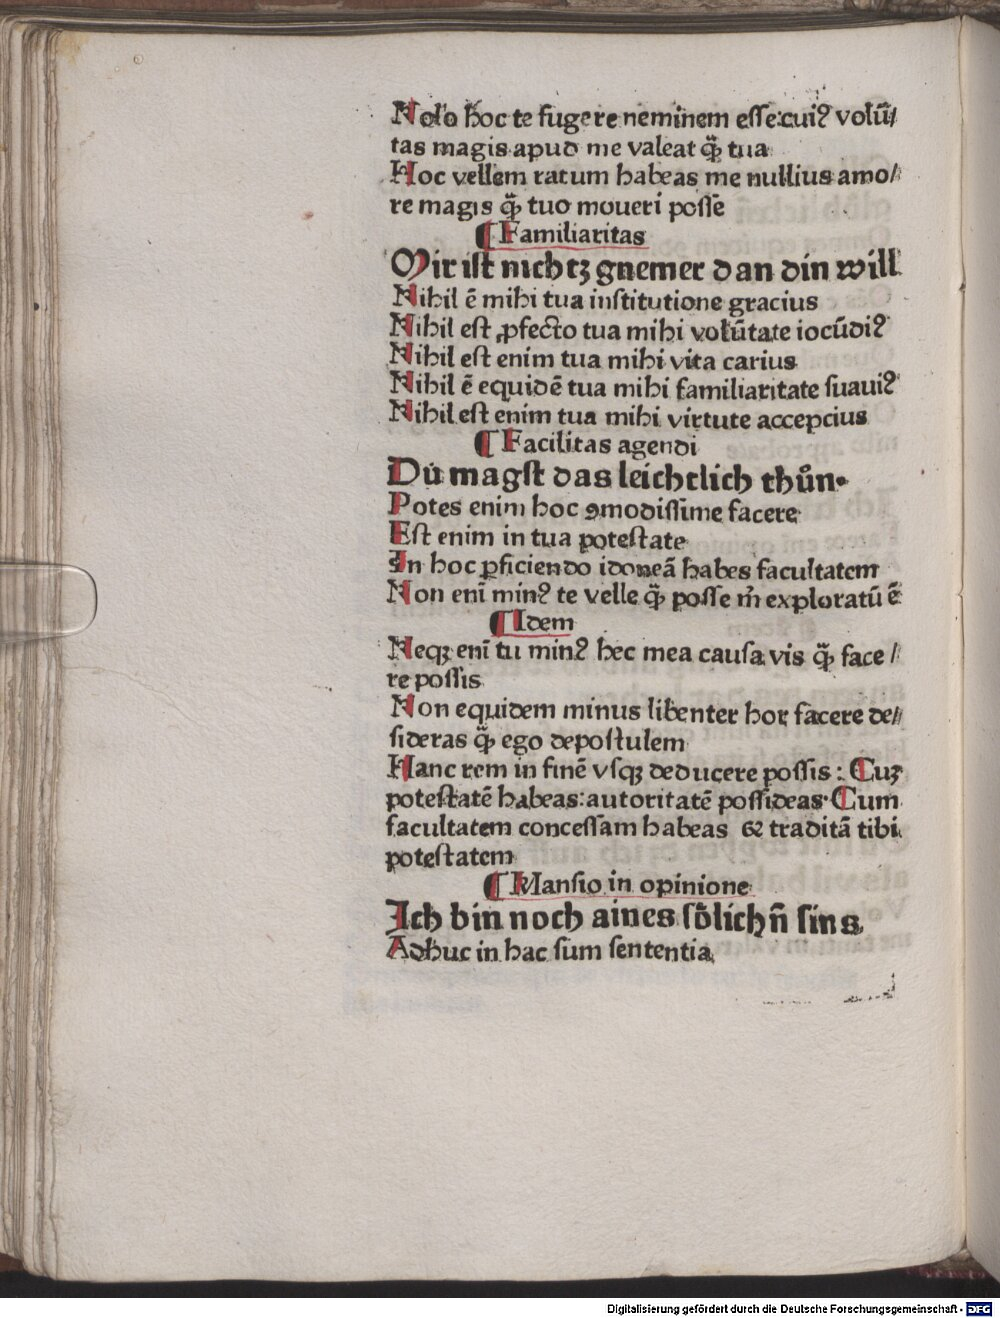 Nolo hoc te fugere neminem esse:cuiꝰ volū⸗
tas magis apud me valeat q̄ꝫ tua
Hoc vellem ratum habeas me nullius amo⸗
re magis q̄ꝫ tuo moueri posse
¶ Familiaritas
Mir ist nichtz gnemer dan din will
Nihil ē mihi tua institutione gracius
Nihil est ꝓfecto tua mihi volūtate iocūdiꝰ
Nihil est enim tua mihi vita carius
Nihil ē equidē tua mihi familiaritate suauiꝰ
Nihil est enim tua mihi virtute accepcius
¶ Facilitas agendi
Dů magst das leichtlich thůn·
Potes enim hoc ꝯmodissime facere
Est enim in tua potestate
In hoc ꝑficiendo idoneā habes facultatem
Non enī minꝰ te velle q̄ꝫ posse m̄ exploratū ē
¶ Idem
Neqꝫ enī tu minꝰ hec mea causa vis q̄ꝫ face⸗
re possis
Non equidem minus libenter hoc facere de⸗
sideras q̄ꝫ ego depostulem
Hanc rem in finē vsqꝫ deducere possis : Cuꝫ
potestatē habeas:autoritatē possideas·Cum
facultatem concessam habeas ⁊ traditā tibi
potestatem
¶ Mansio in opinione
Ich bin noch aines sȯlichn̄ sins
Adhuc in hac sum sententia
Digitalisierung gefördert durch die Deutsche Forschungsgemeinschaft - DFG